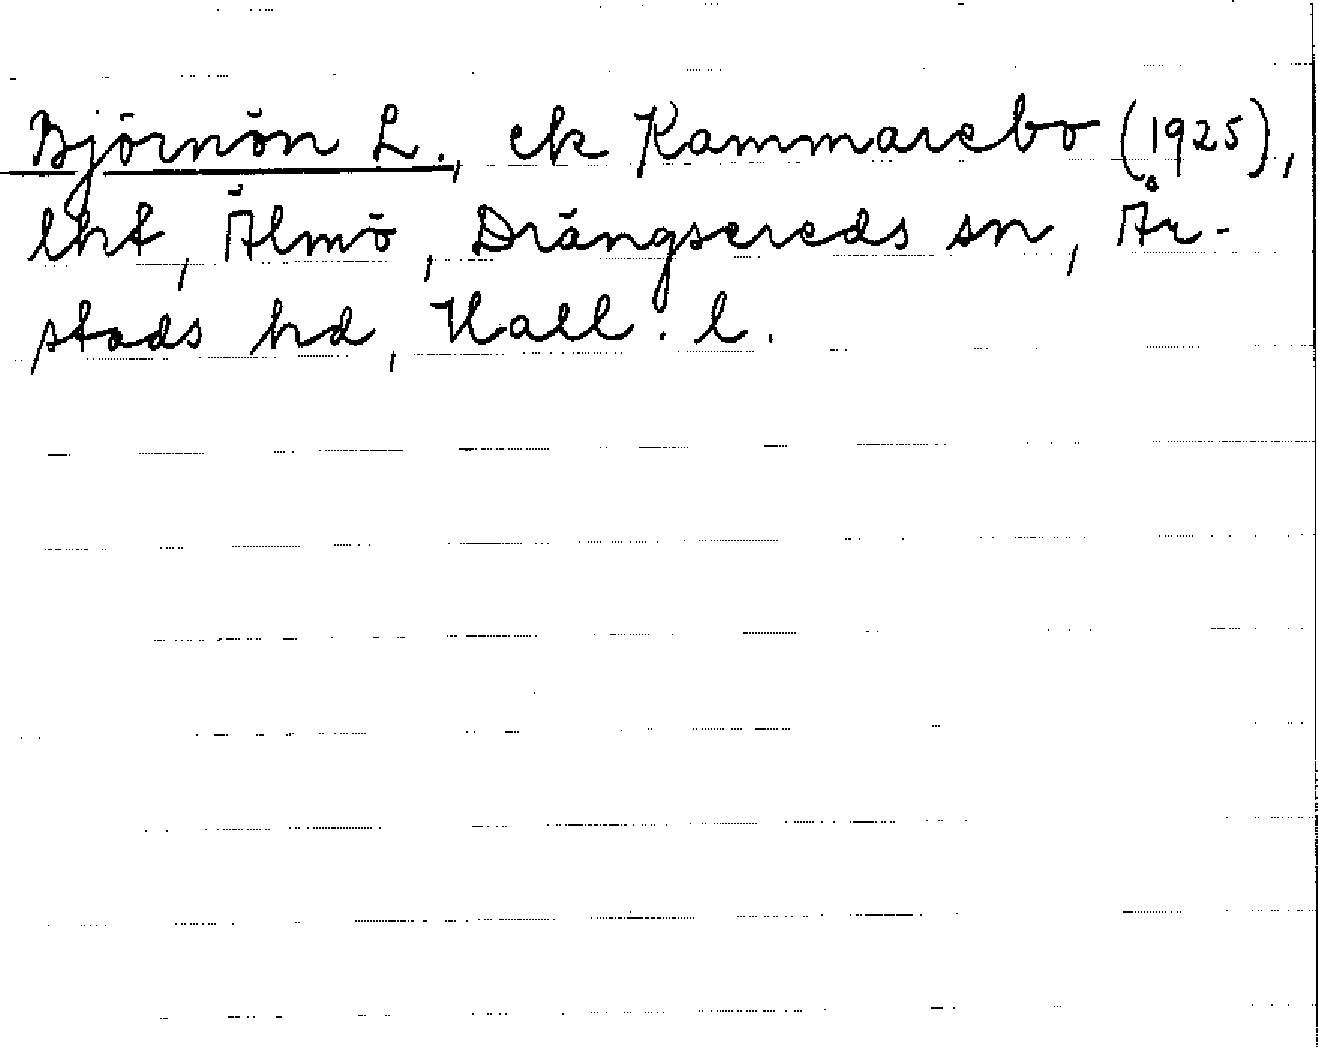 Björnön L., ek Kammarebo (1925),
lht, Älmö, Drängsereds sn, År-
stads hd, Hall. l.